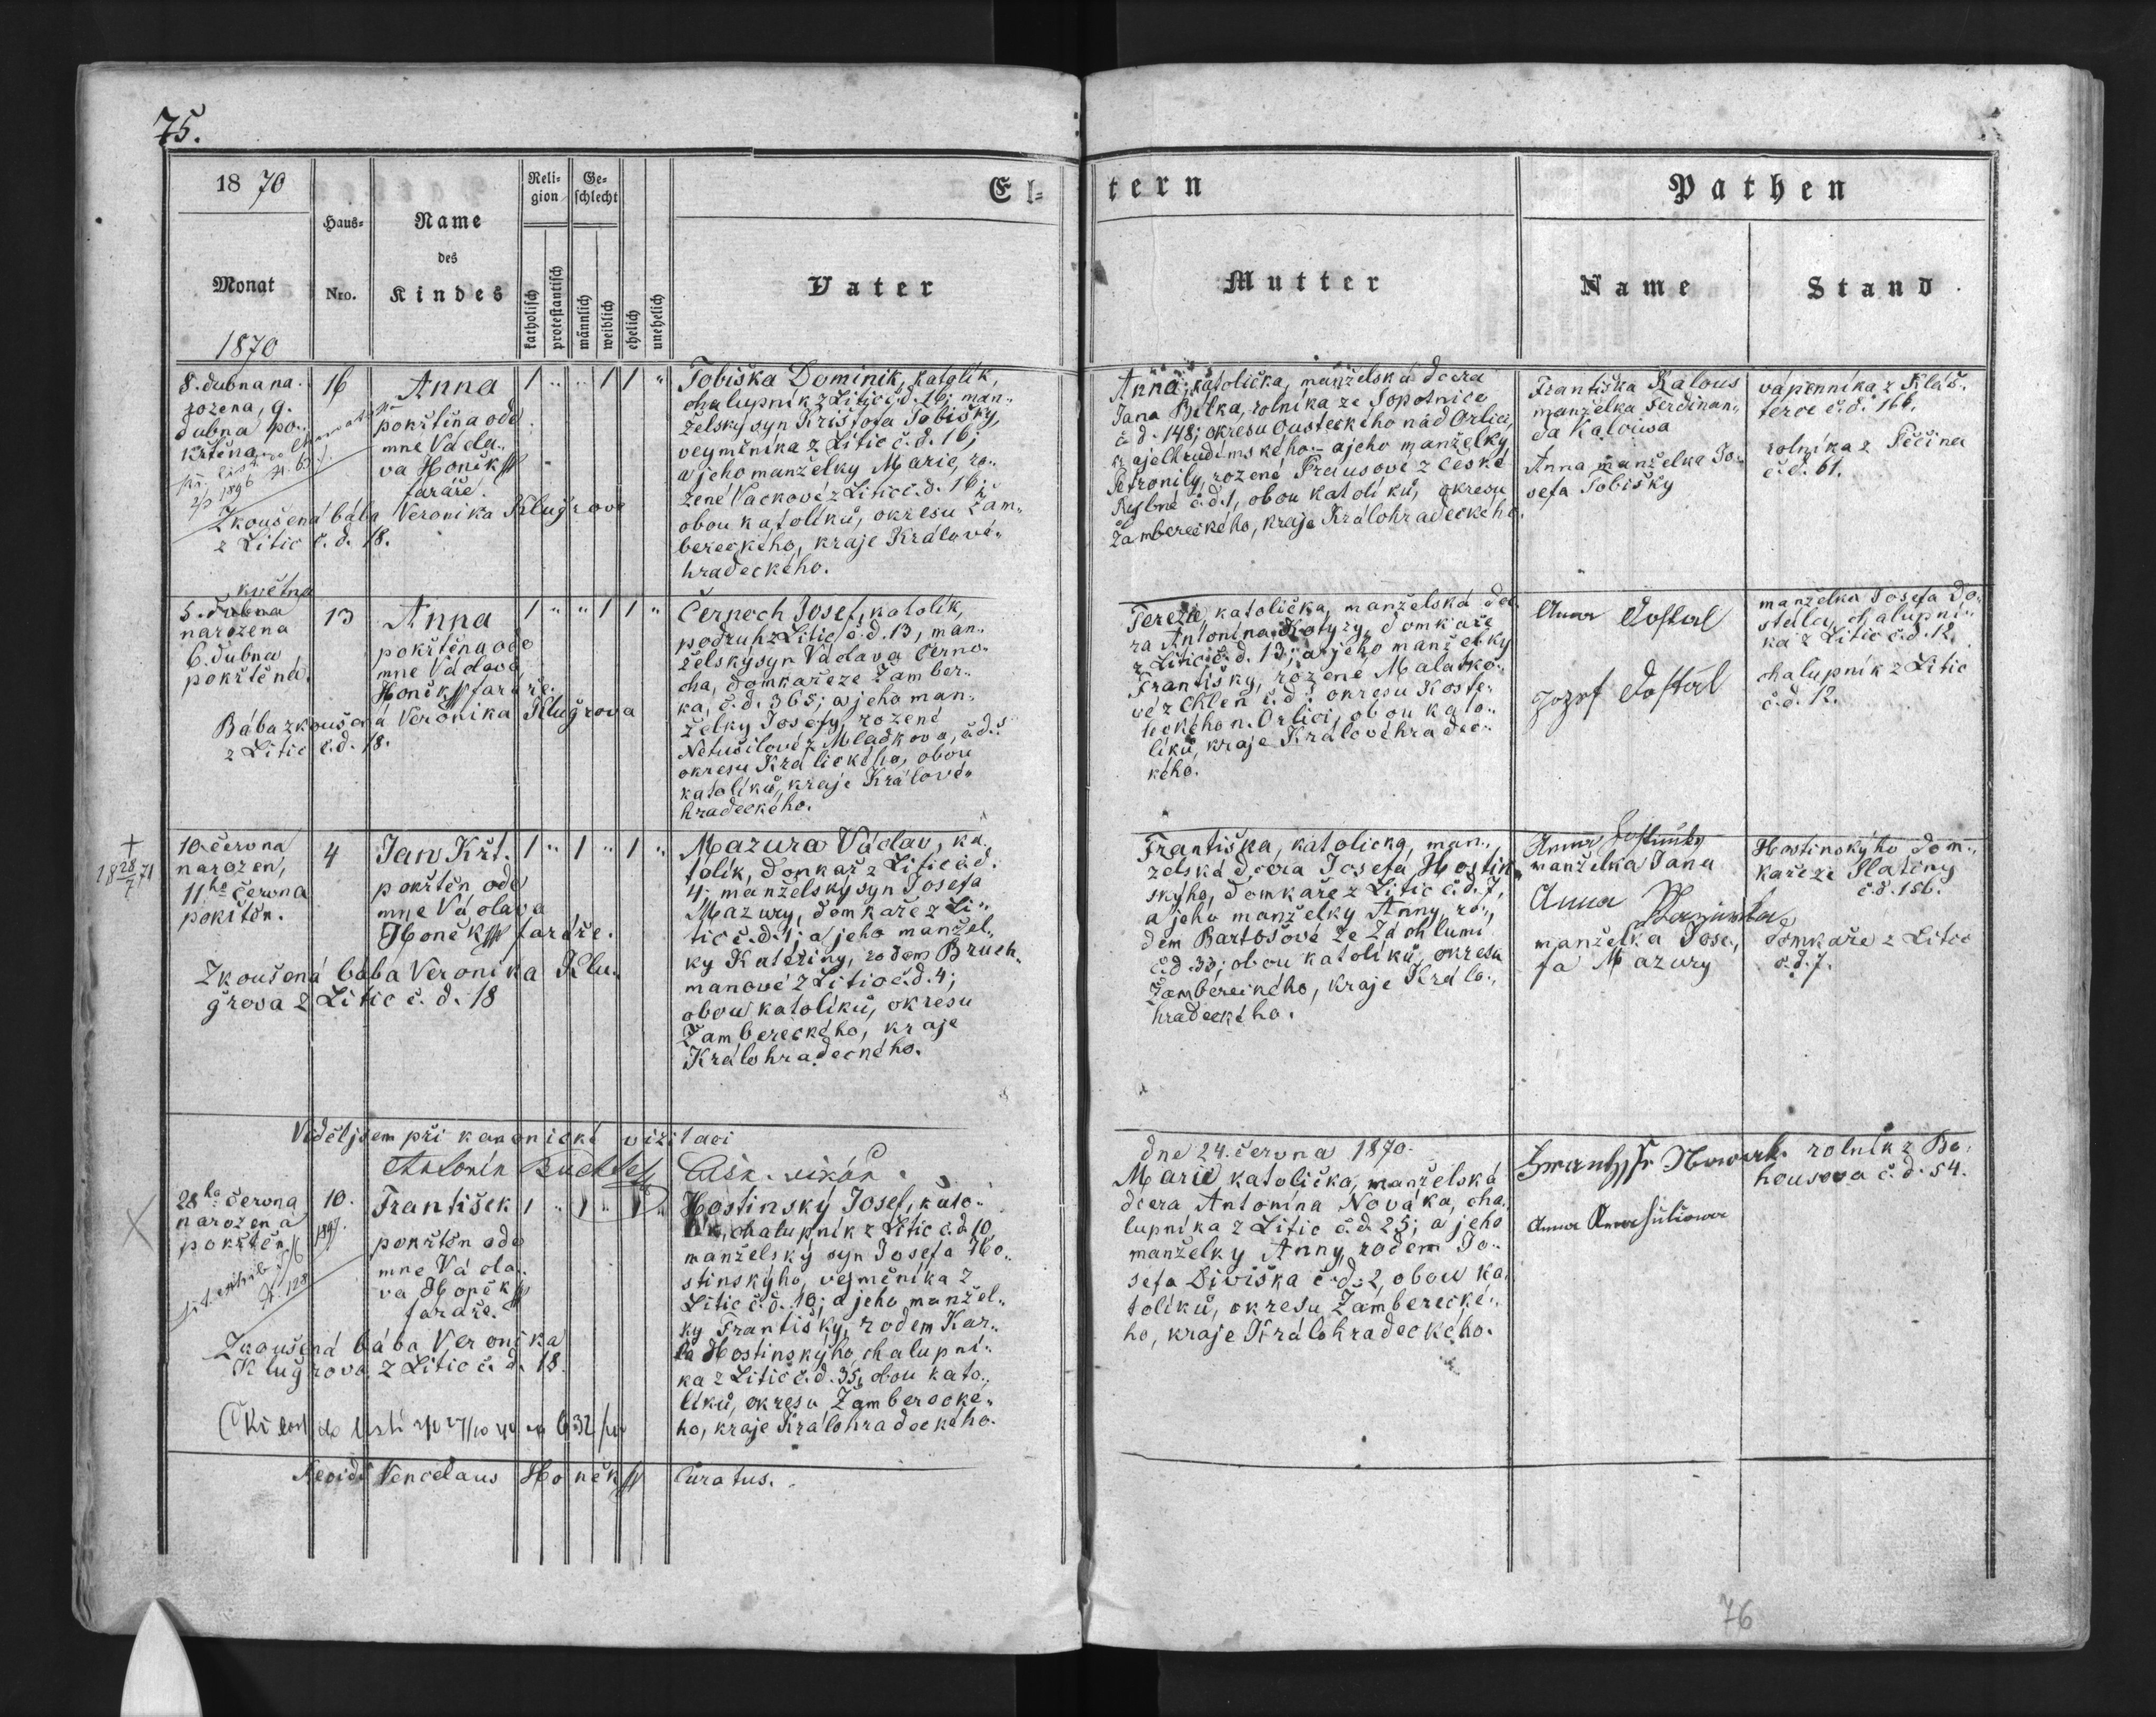 75.
18 70
Haus-
Nro.
Name
des
Kindes
Reli-
gion
Ge-
schlecht
katholisch
protestantisch
männlich
weiblich
ehelich
unehelich
El-
Vater
Monat
1870
tern
Mutter
Pathen
Name
Stand
8. dubna na-
rozena, 9.
dubna po-
křtěna
1896
16
Anna
pokřtěna ode
mne Václa-
va Honěk
faráře.
1 " " 1 1 "
Zkoušená bába Veronika Klugrova
z Litic č. d. 18.
Tobiška Dominik, katolík,
chalupník z Litic č. d. 16; man-
želský syn Krištofa Tobišky,
vejměníka z Litic č. d. 16;
a jeho manželky Marie, ro-
zené Vackové z Litic č. d. 16;
obou katolíků, okresu Žam-
bereckého, kraje Králové-
hradeckého.
Anna, katolička, manželská dcera
Jana Bílka, rolníka ze Sopotnice
č. d. 148; okresu Ousteckého nad Orlicí,
kraje Chrudimského - a jeho manželky
Petronily, rozené Preiusové z české
Rybné č. d. 1, obou katolíků, okresu
Žambereckého, kraje Králohradeckého.
Františka Kalous
manželka Ferdinan-
da Kalousa
Anna manželka Jo-
sefa Tobišky
vápenníka z Kláš-
terce č. d. 166.
rolníka z Pěčína
č. d. 61.
května
5. dubna
narozena
6. dubna
pokřtěna.
13
Anna
pokřtěna ode
mne Václava
Honěk faráře.
1 " " 1 1 "
Bába zkoušená Veronika Klugrova
z Litic č. d. 18.
Černoch Josef, katolík,
podruh z Litic č. d. 13, man-
želský syn Václava Černo-
cha, domkaře ze Žamber-
ka, č. d. 365; a jeho man-
želky Josefy, rozené
Netušilové z Mladkova, č. d.
okresu Králického, obou
katolíků, kraje Králové-
hradeckého.
Tereza, katolička, manželská dce-
ra Antonína Kotyzy, domkaře
z Litic č. d. 13; a jeho manželky
Františky, rozené Malátko-
vé z Chlen č. d. okresu Koste-
leckého n. Orlicí, obou kato-
líků, kraje Královéhradec-
kého.
Anna Dostal
Jozef Dostal
manželka Josefa Do-
stála, chalupní-
ka z Litic č. d. 12.
chalupník z Litic
č. d. 12.
+
18 28/7 71
10 června
narozen,
11ho června
pokřtěn.
4
Jan Křt.
pokřtěn ode
mne Václava
Honěk faráře.
1 " 1 " 1 "
Zkoušená bába Veronika Klu-
grova z Litic č. d. 18
Mazura Václav, ka-
tolík, domkař z Litic č. d.
4; manželský syn Josefa
Mazury, domkaře z Li-
tic č. d. 1; a jeho manžel-
ky Kateřiny, rodem Bruch-
manové z Litic č. d. 4;
obou katolíků, okresu
Žambereckého, kraje
Králohradeckého.
Františka, katolička, man-
želská dcera Josefa Hostin-
skýho, domkaře z Litic č. d. 7,
a jeho manželky Anny, ro-
dem Bartošové ze Záchlumí
č. d. 33; obou katolíků, okresu
Žambereckého, kraje Králo-
hradeckého.
Anna
manželka Jana
Anna
manželka Jose-
fa Mazury
Hostinskýho dom-
kaře ze Slatiny
č. d. 186.
domkaře z Litic
č. d. 7.
Viděl jsem při kanonické vizitaci
dne 24. června 1870.
Antonín
vikář.
28ho června
narozen a
pokřtěn
10.
František
pokřtěn ode
mne Václa-
va Honěk
faráře.
1 " 1 " 1 "
Zkoušená bába Veronika
Klugrova z Litic č. d. 18.
Hostinský Josef, kato-
lík, chalupník z Litic č. d. 10,
manželský syn Josefa Ho-
stinskýho, vejměníka z
Litic č. d. 10; a jeho manžel-
ky Františky, rodem Kar-
la Hostinskýho, chalupní-
ka z Litic č. d. 35, obou kato-
líků, okresu Žamberecké-
ho, kraje Králohradeckého.
Marie katolička, manželská
dcera Antonína Nováka, cha-
lupníka z Litic č. d. 25; a jeho
manželky Anny, rodem Jo-
sefa Diviška č. d. 2, obou ka-
tolíků, okresu Žamberecké-
ho, kraje Králohradeckého.
Nowak
Anna
rolník z Bo-
housova č. d. 54.
Venceslaus Honěk Curatus.
76